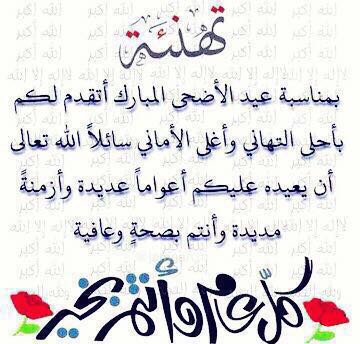 تهنئة
بمناسبة عيد الأضحى المبارك أتقدم لكم
بأحلى التهاني وأغلى الأماني سائلاً الله تعالى
أن يعيده عليكم أعواماً عديدة وأزمنةً
مديدة وأنتم بصحةٍ وعافية
كل عام وأنتم بخير